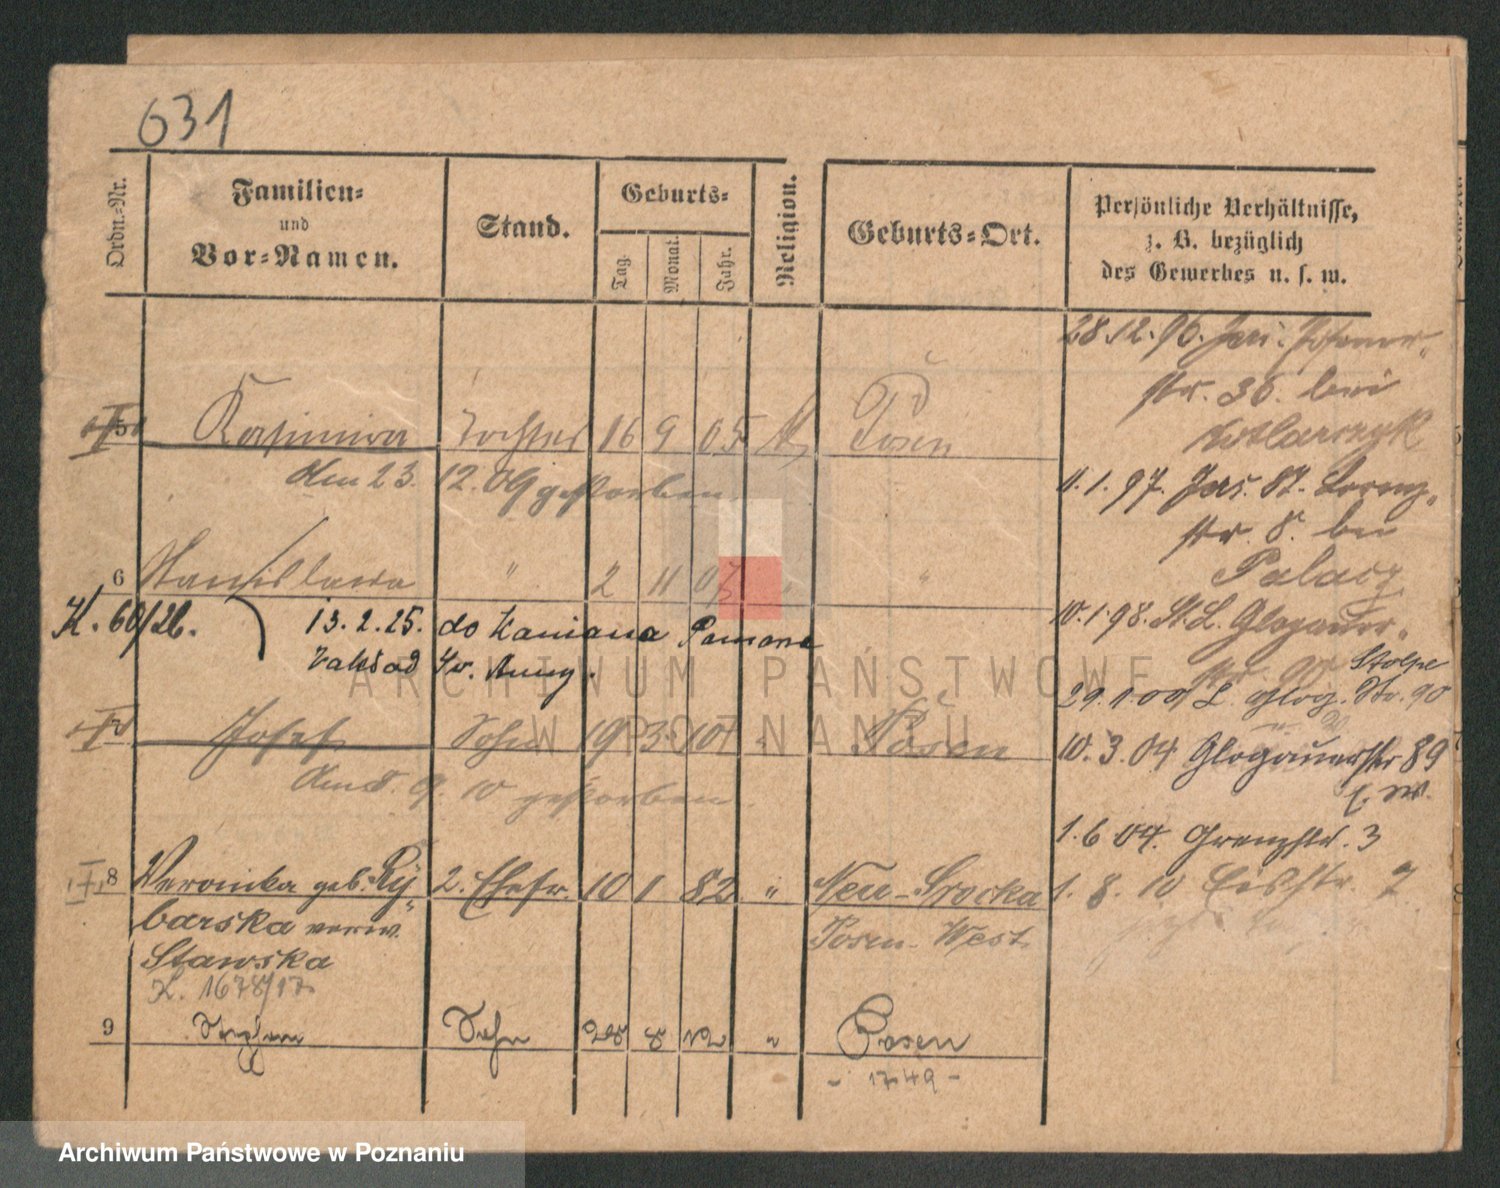 631
Ordn.-Nr.
Familien-
und
Vor-Namen.
Stand.
Geburts-
Tag.
Monat.
Jahr.
Religion.
Geburts-Ort.
Persönliche Verhältnisse,
z. B. bezüglich
des Gewerbes u. s. w.
28.12.96. Jers.
str. 36. bei
4.1.97. Jers. St. Lorenz-
str. 8. bei
Palacz
10.1.98. St. L. Glogauer-
str. 90 Stolpe
29.1.00 L Glog. Str. 90
10.3.04 Glogauerstr 89
1.6.04. Grenzstr. 3
1. 8. 10 Eichstr. 7
5 Kasimira Tochter 16 9 05 Posen
Am 23. 12. 09 gestorben
6 Stanislawa " 2 11 07 " "
K. 60/26. 13.2.25. do Kaniana
Zakład Św. Anny.
Josef Sohn 19 3 10 " Posen
Am 8. 9. 10 gestorben
8 Veronika geb. Ry- 2. Ehefr. 10 1 82 " Neu-Srocka
barska verw. Posen-West
Stawska
K. 1678/17
9 Stephan Sohn 28 8 12 " Posen
- 1749 -
ARCHIWUM PAŃSTWOWE
W POZNANIU
Archiwum Państwowe w Poznaniu